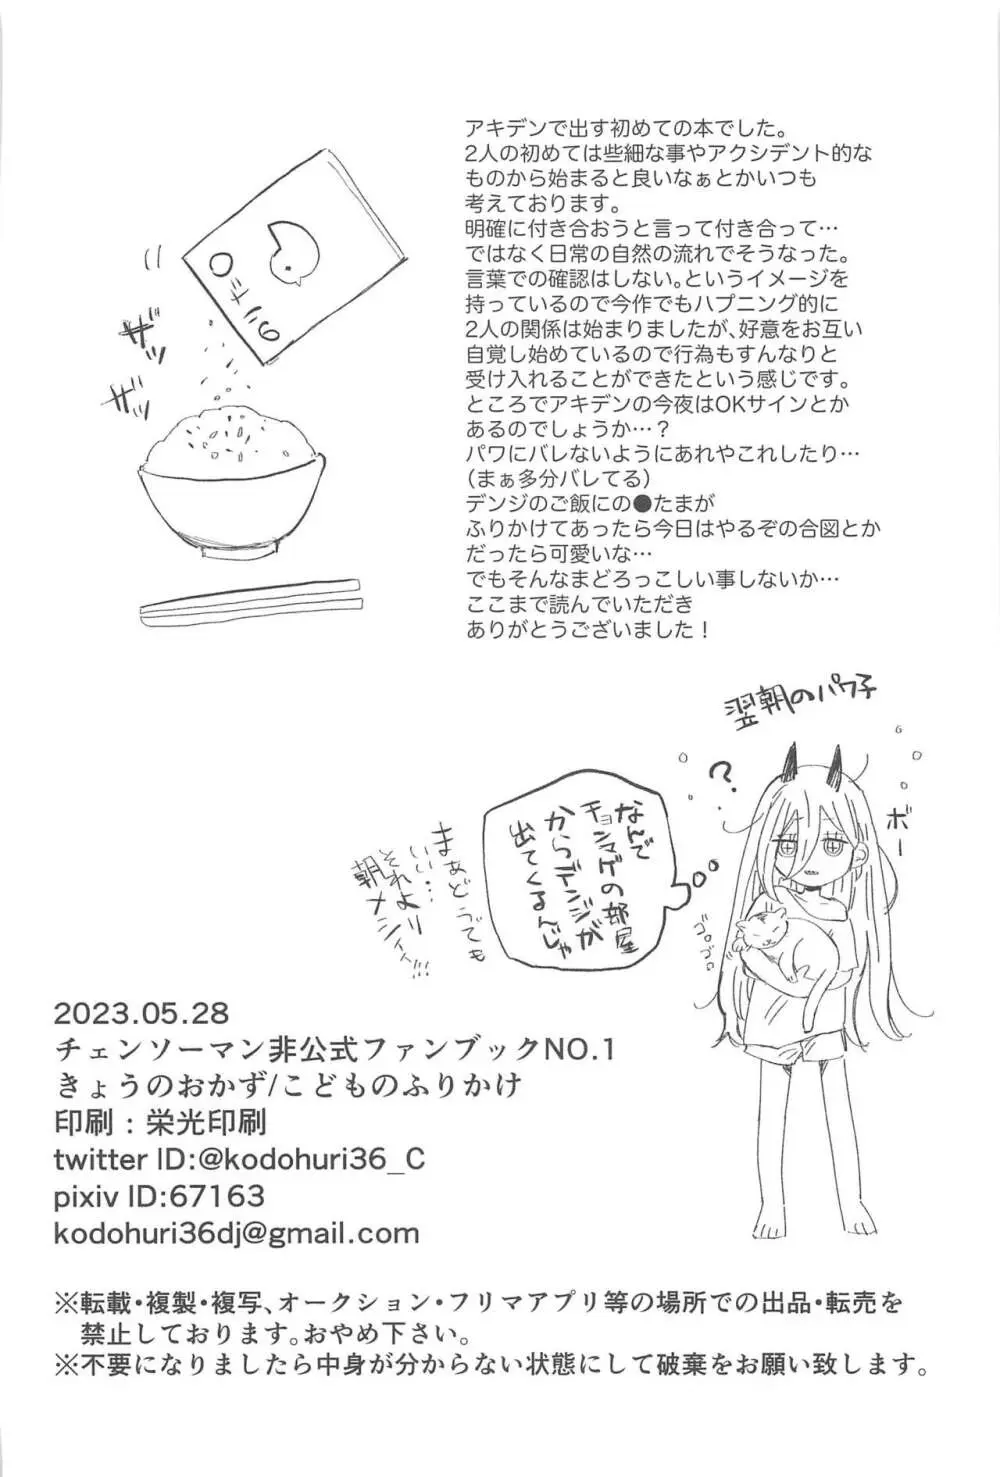 アキデンで出す初めての本でした。
2人の初めては些細な事やアクシデント的な
ものから始まると良いなぁとかいつも
考えております。
明確に付き合おうと言って付き合って…
ではなく日常の自然の流れでそうなった。
言葉での確認はしない。というイメージを
持っているので今作でもハプニング的に
2人の関係は始まりましたが、好意をお互い
自覚し始めているので行為もすんなりと
受け入れることができたという感じです。
ところでアキデンの今夜はOKサインとか
あるのでしょうか…？
パワにバレないようにあれやこれしたり…
（まぁ多分バレてる）
デンジのご飯にの●たまが
ふりかけてあったら今日はやるぞの合図とか
だったら可愛いな…
でもそんなまどろっこしい事しないか…
ここまで読んでいただき
ありがとうございました！
のこたの
ザッ
ザッ
翌朝のパワ子
？
ボー
なんで
チョンマゲの部屋
からデンジが
出てくるんじゃ
まぁどうでも
いい…
それより
朝メシィィ!!!
ゴロゴロ
2023.05.28
チェンソーマン非公式ファンブックNO.1
きょうのおかず/こどものふりかけ
印刷：栄光印刷
twitter ID:@kodohuri36_C
pixiv ID:67163
kodohuri36dj@gmail.com
※転載・複製・複写、オークション・フリマアプリ等の場所での出品・転売を
禁止しております。おやめ下さい。
※不要になりましたら中身が分からない状態にして破棄をお願い致します。